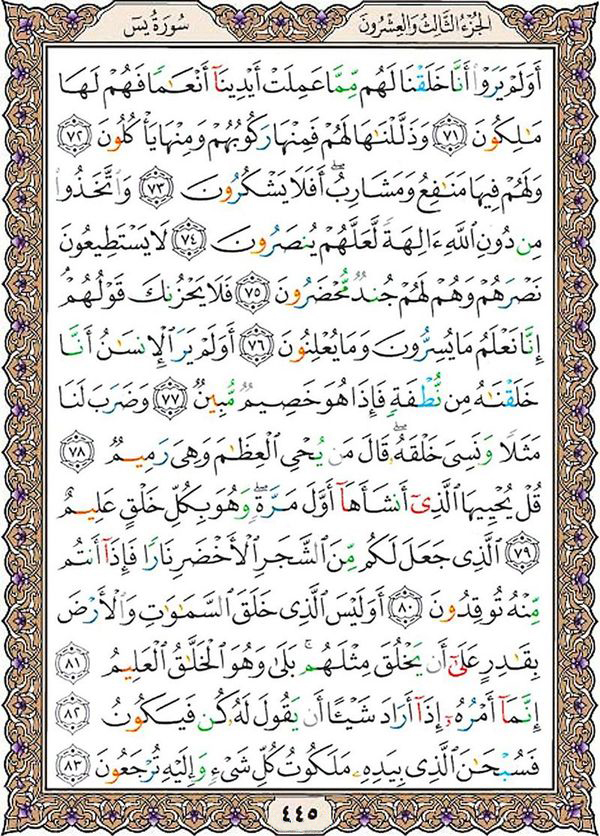 الجزء الثالث والعشرون
سورة يس
أَوَلَمْ يَرَوْا۟ أَنَّا خَلَقْنَا لَهُم مِّمَّا عَمِلَتْ أَيْدِينَآ أَنْعَـٰمًا فَهُمْ لَهَا
مَـٰلِكُونَ ٧١ وَذَلَّلْنَـٰهَا لَهُمْ فَمِنْهَا رَكُوبُهُمْ وَمِنْهَا يَأْكُلُونَ ٧٢
وَلَهُمْ فِيهَا مَنَـٰفِعُ وَمَشَارِبُ ۖ أَفَلَا يَشْكُرُونَ ٧٣ وَٱتَّخَذُوا۟
مِن دُونِ ٱللَّهِ ءَالِهَةً لَّعَلَّهُمْ يُنصَرُونَ ٧٤ لَا يَسْتَطِيعُونَ
نَصْرَهُمْ وَهُمْ لَهُمْ جُندٌ مُّحْضَرُونَ ٧٥ فَلَا يَحْزُنكَ قَوْلُهُمْ ۘ
إِنَّا نَعْلَمُ مَا يُسِرُّونَ وَمَا يُعْلِنُونَ ٧٦ أَوَلَمْ يَرَ ٱلْإِنسَـٰنُ أَنَّا
خَلَقْنَـٰهُ مِن نُّطْفَةٍ فَإِذَا هُوَ خَصِيمٌ مُّبِينٌ ٧٧ وَضَرَبَ لَنَا
مَثَلًا وَنَسِىَ خَلْقَهُۥ ۖ قَالَ مَن يُحْىِ ٱلْعِظَـٰمَ وَهِىَ رَمِيمٌ ٧٨
قُلْ يُحْيِيهَا ٱلَّذِىٓ أَنشَأَهَآ أَوَّلَ مَرَّةٍ ۖ وَهُوَ بِكُلِّ خَلْقٍ عَلِيمٌ
٧٩ ٱلَّذِى جَعَلَ لَكُم مِّنَ ٱلشَّجَرِ ٱلْأَخْضَرِ نَارًا فَإِذَآ أَنتُم
مِّنْهُ تُوقِدُونَ ٨٠ أَوَلَيْسَ ٱلَّذِى خَلَقَ ٱلسَّمَـٰوَٰتِ وَٱلْأَرْضَ
بِقَـٰدِرٍ عَلَىٰٓ أَن يَخْلُقَ مِثْلَهُم ۚ بَلَىٰ وَهُوَ ٱلْخَلَّـٰقُ ٱلْعَلِيمُ ٨١
إِنَّمَآ أَمْرُهُۥٓ إِذَآ أَرَادَ شَيْـًٔا أَن يَقُولَ لَهُۥ كُن فَيَكُونُ ٨٢
فَسُبْحَـٰنَ ٱلَّذِى بِيَدِهِۦ مَلَكُوتُ كُلِّ شَىْءٍ وَإِلَيْهِ تُرْجَعُونَ ٨٣
٤٤٥